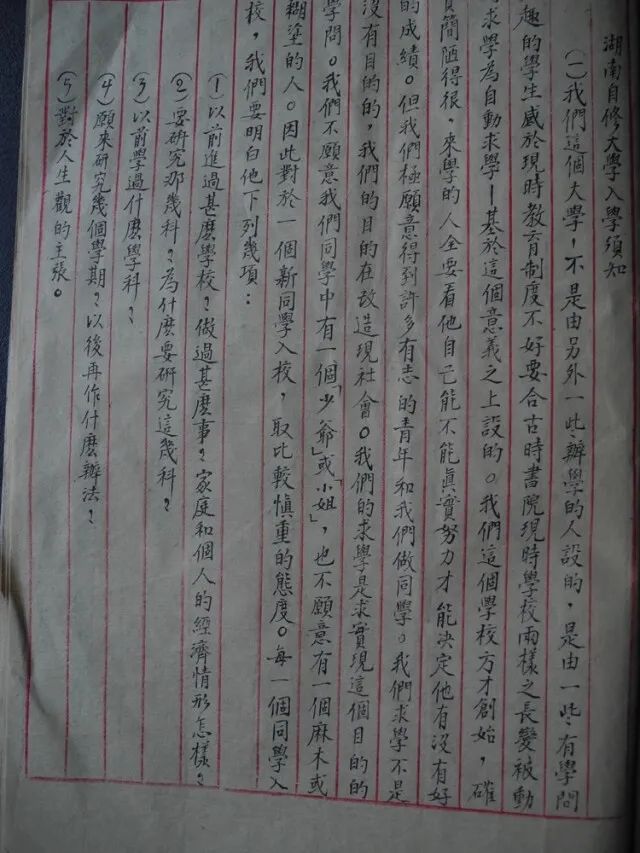 湖南自修大學入學須知
(一)我們這個大學,不是由另外一些辦學的人設的,是由一些有學問
趣的學生感於現時教育制度不好要合古時書院現時學校兩樣之長變被動
求學為自動求學—基於這個意義之上設的。我們這個學校方才創始,確
簡陋得很,來學的人全要看他自己能不能真實努力才能決定他有沒有好
的成績。但我們極願意得到許多有志的青年和我們做同學。我們求學不是
沒有目的的,我們的目的在改造現社會。我們的求學是求實現這個目的的
學問。我們不願意我們同學中有一個「少爺」或「小姐」,也不願意有一個麻木或
糊塗的人。因此對於一個新同學入校,取比較慎重的態度。每一個同學入
校,我們要明白他下列幾項:
(1)以前進過甚麼學校?做過甚麼事?家庭和個人的經濟情形怎樣?
(2)要研究那幾科?為什麼要研究這幾科?
(3)以前學過什麼學科?
(4)願來研究幾個學期?以後再作什麼辦法?
(5)對於人生觀的主張。